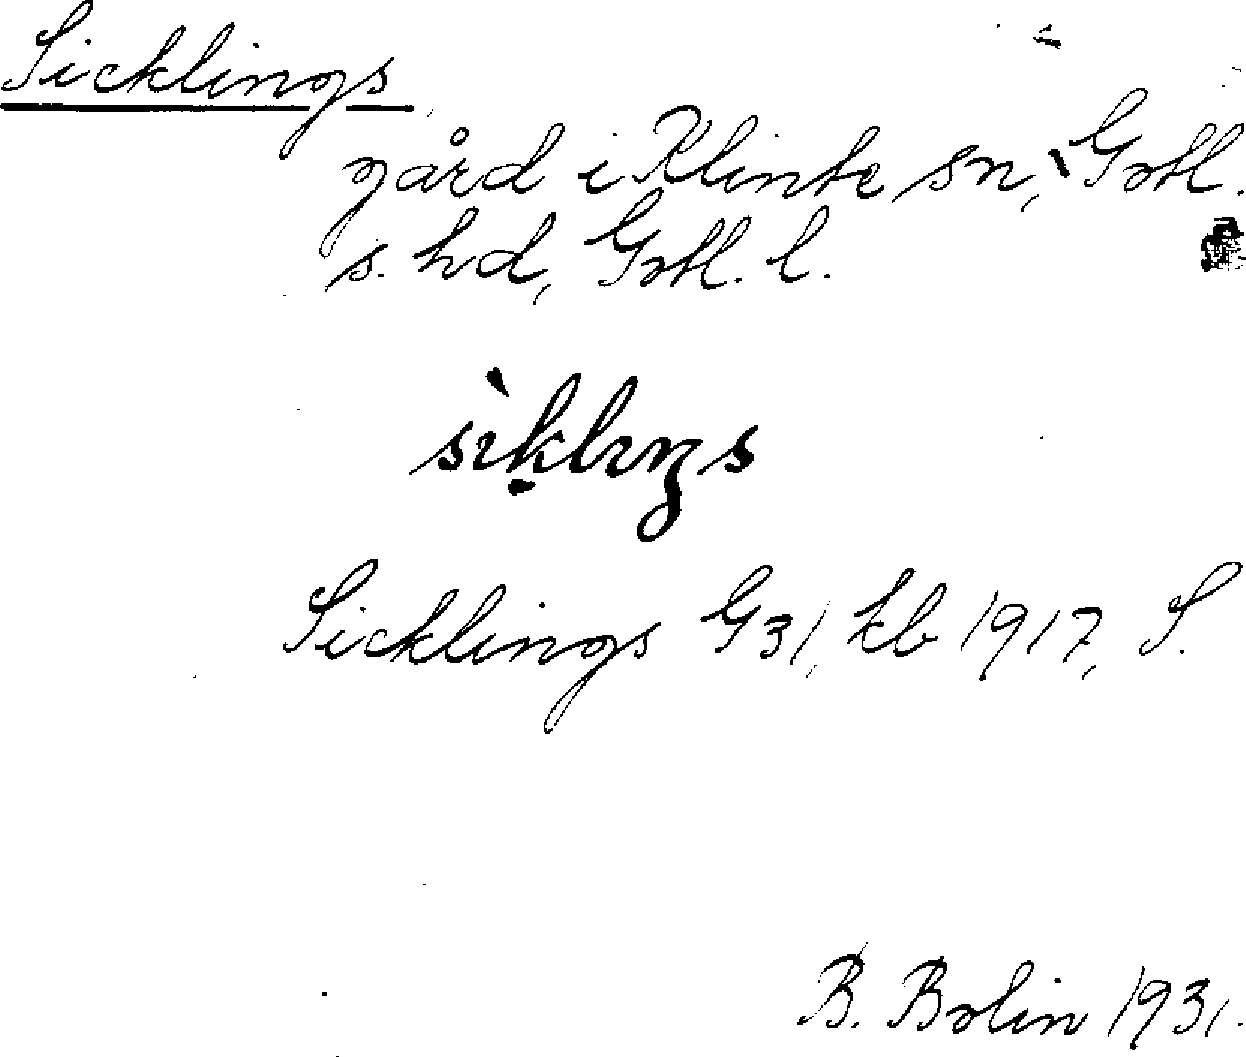 Sicklings
gård i Klinte sn, Gotl.
s. hd, Gotl. l.
sìk̩lıŋs
Sicklings G31, kb 1917, S.
B. Bolin 1931.